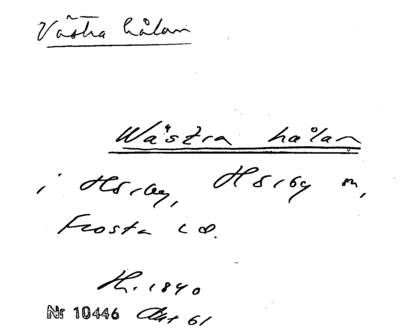 Västra hålan
Wästra hålan
i Hörby, Hörby sn,
Frosta hd.
H. 1840
Nr 10446 Akt 61